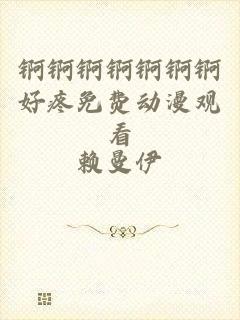 锕锕锕锕锕锕锕
好疼免费动漫观
看
赖曼伊